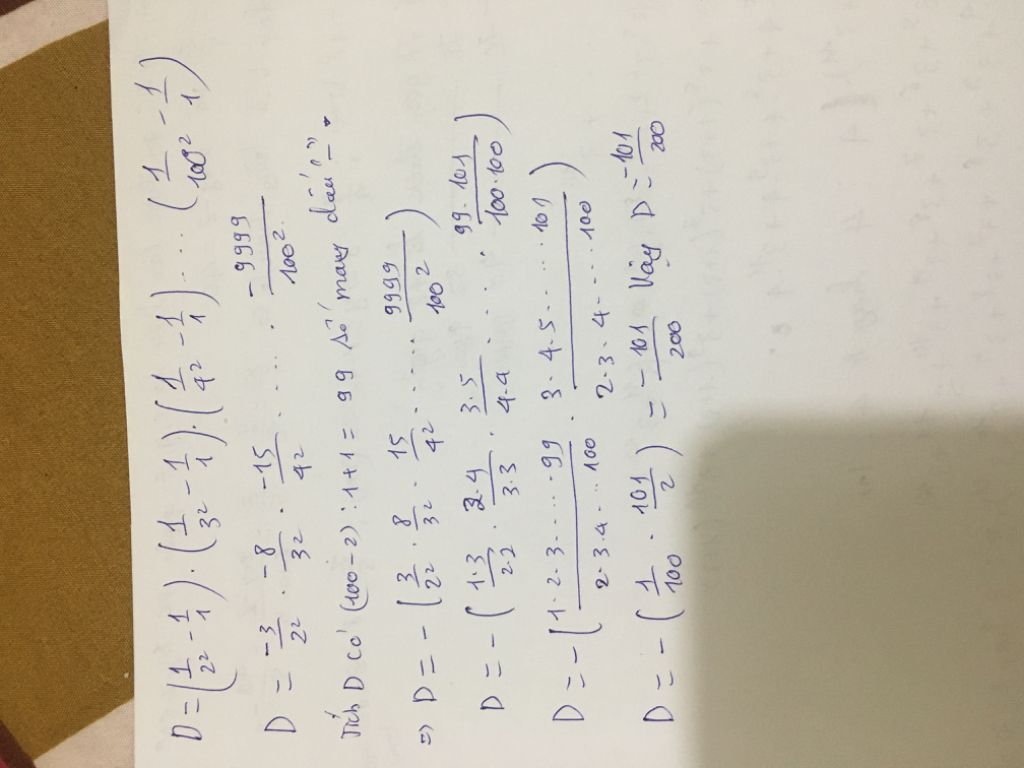 D = (1/2² - 1/1) . (1/3² - 1/1) . (1/4² - 1/1) .... (1/100² - 1/1)
D = -3/2² . -8/3² . -15/4² ..... -9999/100²
Tích D có (100-2):1+1 = 99 số mang dấu "-".
=> D = - (3/2² . 8/3² . 15/4² ..... 9999/100²)
D = - (1.3/2.2 . 2.4/3.3 . 3.5/4.4 ..... 99.101/100.100)
D = - (1.2.3....99/2.3.4...100 . 3.4.5....101/2.3.4....100)
D = - (1/100 . 101/2) = -101/200 Vậy D = -101/200